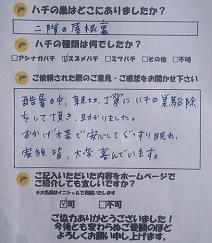 ハチの巣はどこにありましたか？
二階の屋根裏
ハチの種類は何でしたか？
□アシナガバチ ☑スズメバチ □ミツバチ □その他 □不明
ご依頼された際のご意見・ご感想をお聞かせ下さい
酷暑の中、親切、丁寧にハチの巣駆除
をして頂き、助かりました。
おかげ様で安心してぐっすり眠れ、
家族皆、大変喜んでいます。
ご記入いただいた内容をホームページで
ご紹介しても宜しいですか？
☑可 □不可
ご協力ありがとうございました！
今後とも変わらぬご愛顧のほど
よろしくお願い申し上げます。